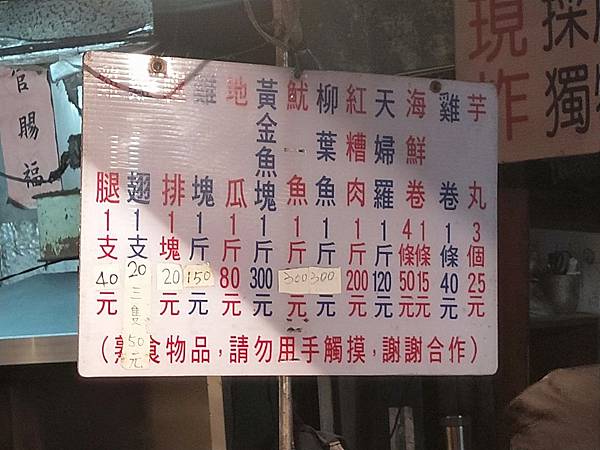 芋丸3個25元
雞卷1條40元
海鮮卷1條15元
4條50元
天婦羅1斤120元
紅糟肉1斤200元
柳葉魚1斤300元
魷魚1斤300元
黃金魚塊1斤300元
地瓜1斤80元
雞塊1斤150元
排1塊20元
翅1支20元
三隻50元
腿1支40元
(熟食物品,請勿用手觸摸,謝謝合作)
現炸
採
獨
官賜福